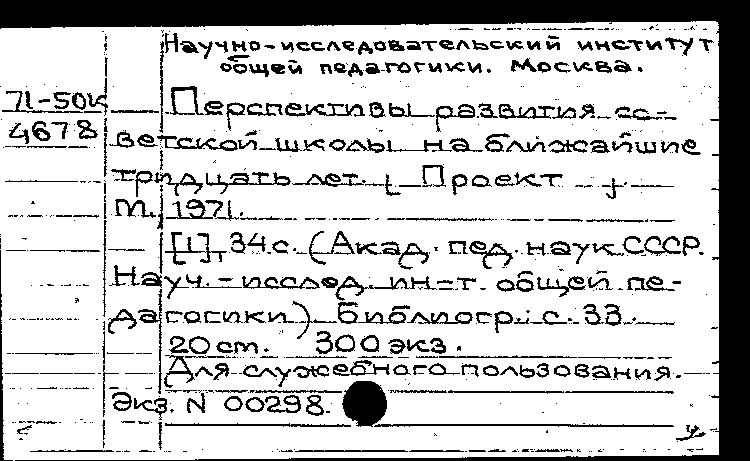 Научно-исследовательский институт
общей педагогики. Москва.
71-50к
4678
Перспективы развития со-
ветской школы на ближайшие
тридцать лет. [ Проект ]
М., 1971.
[1], 34 с. (Акад. пед. наук СССР.
Науч.-исслед. ин-т. общей пе-
дагогики). Библиогр.: с. 33.
20 см. 300 экз.
Для служебного пользования.
Экз. N 00298.